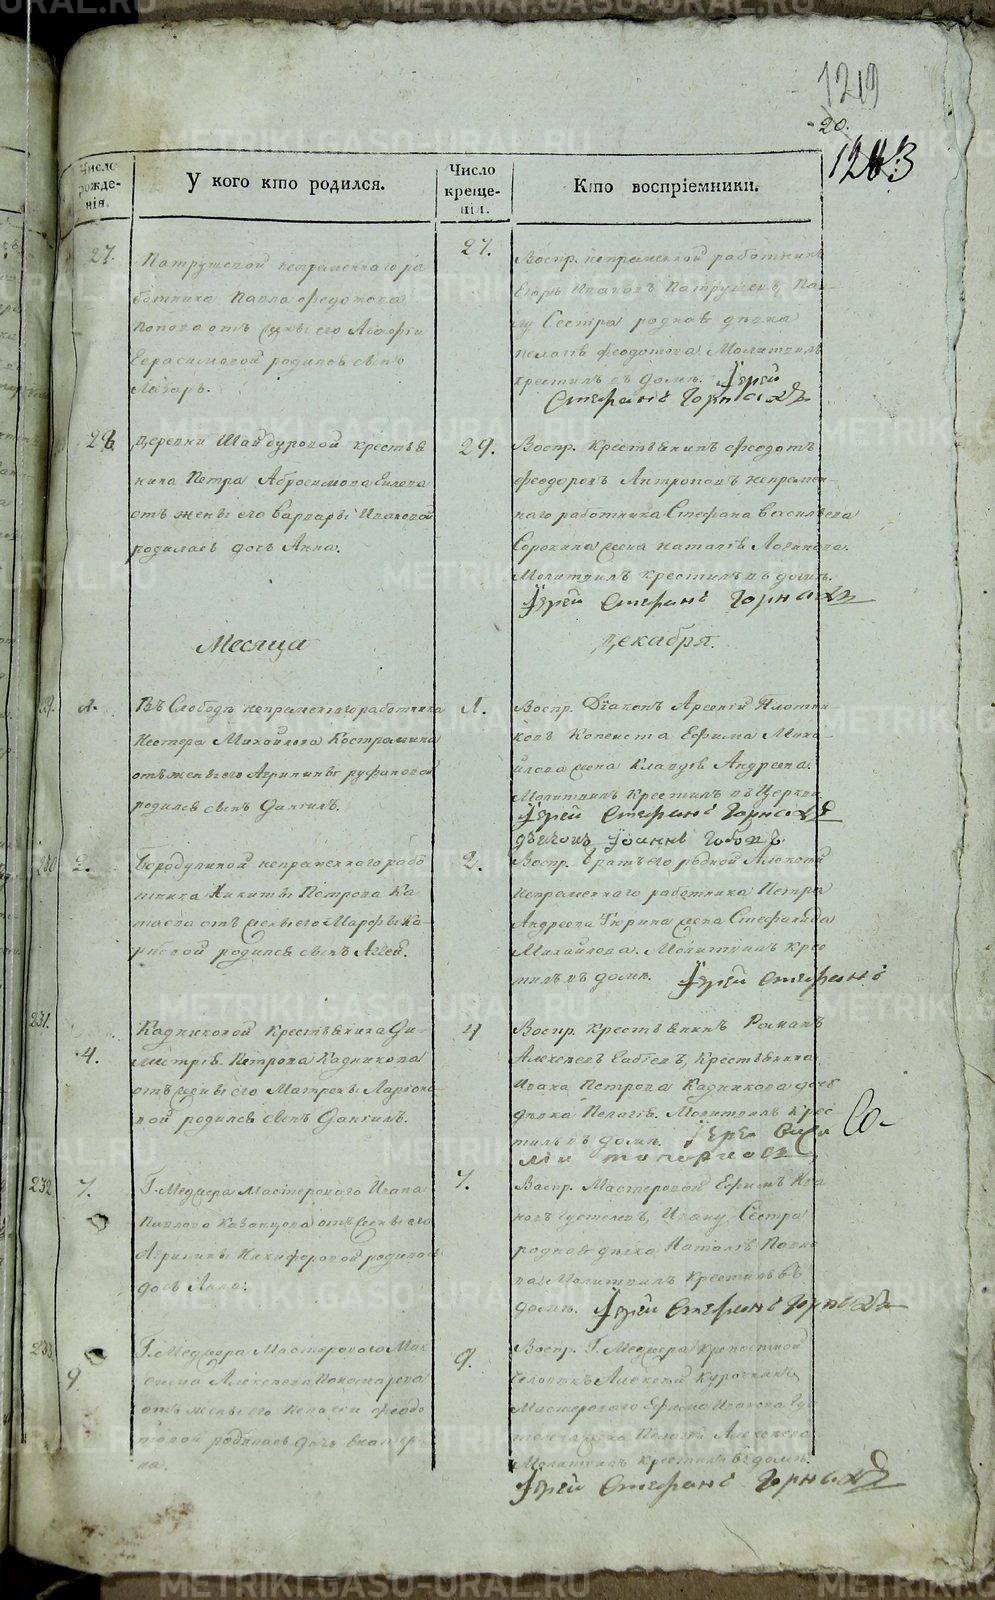 1219
20.
1263
Число рожде-
нія.
У кого кто родился.
Число
креще-
нія.
Кто воспріемники.
27.
Патрушевой непременнаго ра
ботника Павла Федотова
Попова отъ жены его Агафіи
Герасимовой родился сынъ
Лазарь.
27.
Воспр. непременной работникъ
Егоръ Ивановъ Патрушевъ, Пав-
лу Сестра родная девка
Пелагія Феодотова Молитвилъ
крестилъ въ доме. Іерей
Стефанъ Горныхъ
28.
Деревни Шайдуровой крестья
нина Петра Абросимова
отъ жены его Варвары Ивановой
родилась дочь Анна.
29.
Воспр. Крестьянинъ Феодотъ
Феодоровъ Антроповъ непремен-
наго работника Стефана Васильева
Сорокина жена Наталія Логинова.
Молитвилъ крестилъ въ доме.
Іерей Стефанъ Горныхъ
Месяца
Декабря.
229.
1.
Въ Слободе непременнаго работника
Нестера Михайлова Костромина
отъ жены его Агрипины Руфановой
родился сынъ Даниилъ.
1.
Воспр. Діаконъ Арсеній Плотни
ковъ Копеиста Ефима Миха-
йлова жена Клавдія Андреева.
Молитвилъ крестилъ въ Церкви
Іерей Стефанъ Горныхъ
Іоаннъ
230
2.
Бородулиной непременнаго рабо
тника Никиты Петрова Ка
таева отъ жены его Марфы Ка
родился сынъ Аггей.
2.
Воспр. братъ его родной Алексей
непременнаго работника Петра
Андреева Тюрина жена Стефанида
Михайлова. Молитвилъ крес
тилъ въ доме. Іерей Стефанъ
231.
4.
Кадниковой Крестьянина Ди-
митрія Петрова Кадникова
отъ жены его Матрены Ларіоно-
вой родился сынъ Даніилъ.
4
Воспр. Крестьянинъ Романъ
Алексеевъ Крестьянина
Ивана Петрова Кадникова дочь
девка Пелагія. Молитвилъ крес
тилъ въ доме. Іерей Васи
лій Топорковъ
Со-
232
7.
Г. Меджера Мастероваго Ивана
Павлова Казанцева отъ жены его
Агрипины Никифоровой родилась
дочь Анна.
7.
Воспр. Мастеровой Ефимъ Ива
новъ Густелевъ, Ивану Сестра
родная девка Наталія Павло
ва. Молитвилъ крестилъ въ
доме. Іерей Стефанъ Горныхъ
233
9.
Г. Меджера Мастероваго Мак
сима Алексеева Пономарева
отъ жены его Пелагіи Феодо
товой родилась дочь Екатери
на.
9.
Воспр. Г. Меджера крепостной
человекъ Алексей Курочкинъ
Мастероваго Ефима Иванова Гу
жена Пелагея Алексеева
Молитвилъ крестилъ въ доме.
Іерей Стефанъ Горныхъ
METRIKI.GASO-URAL.RU